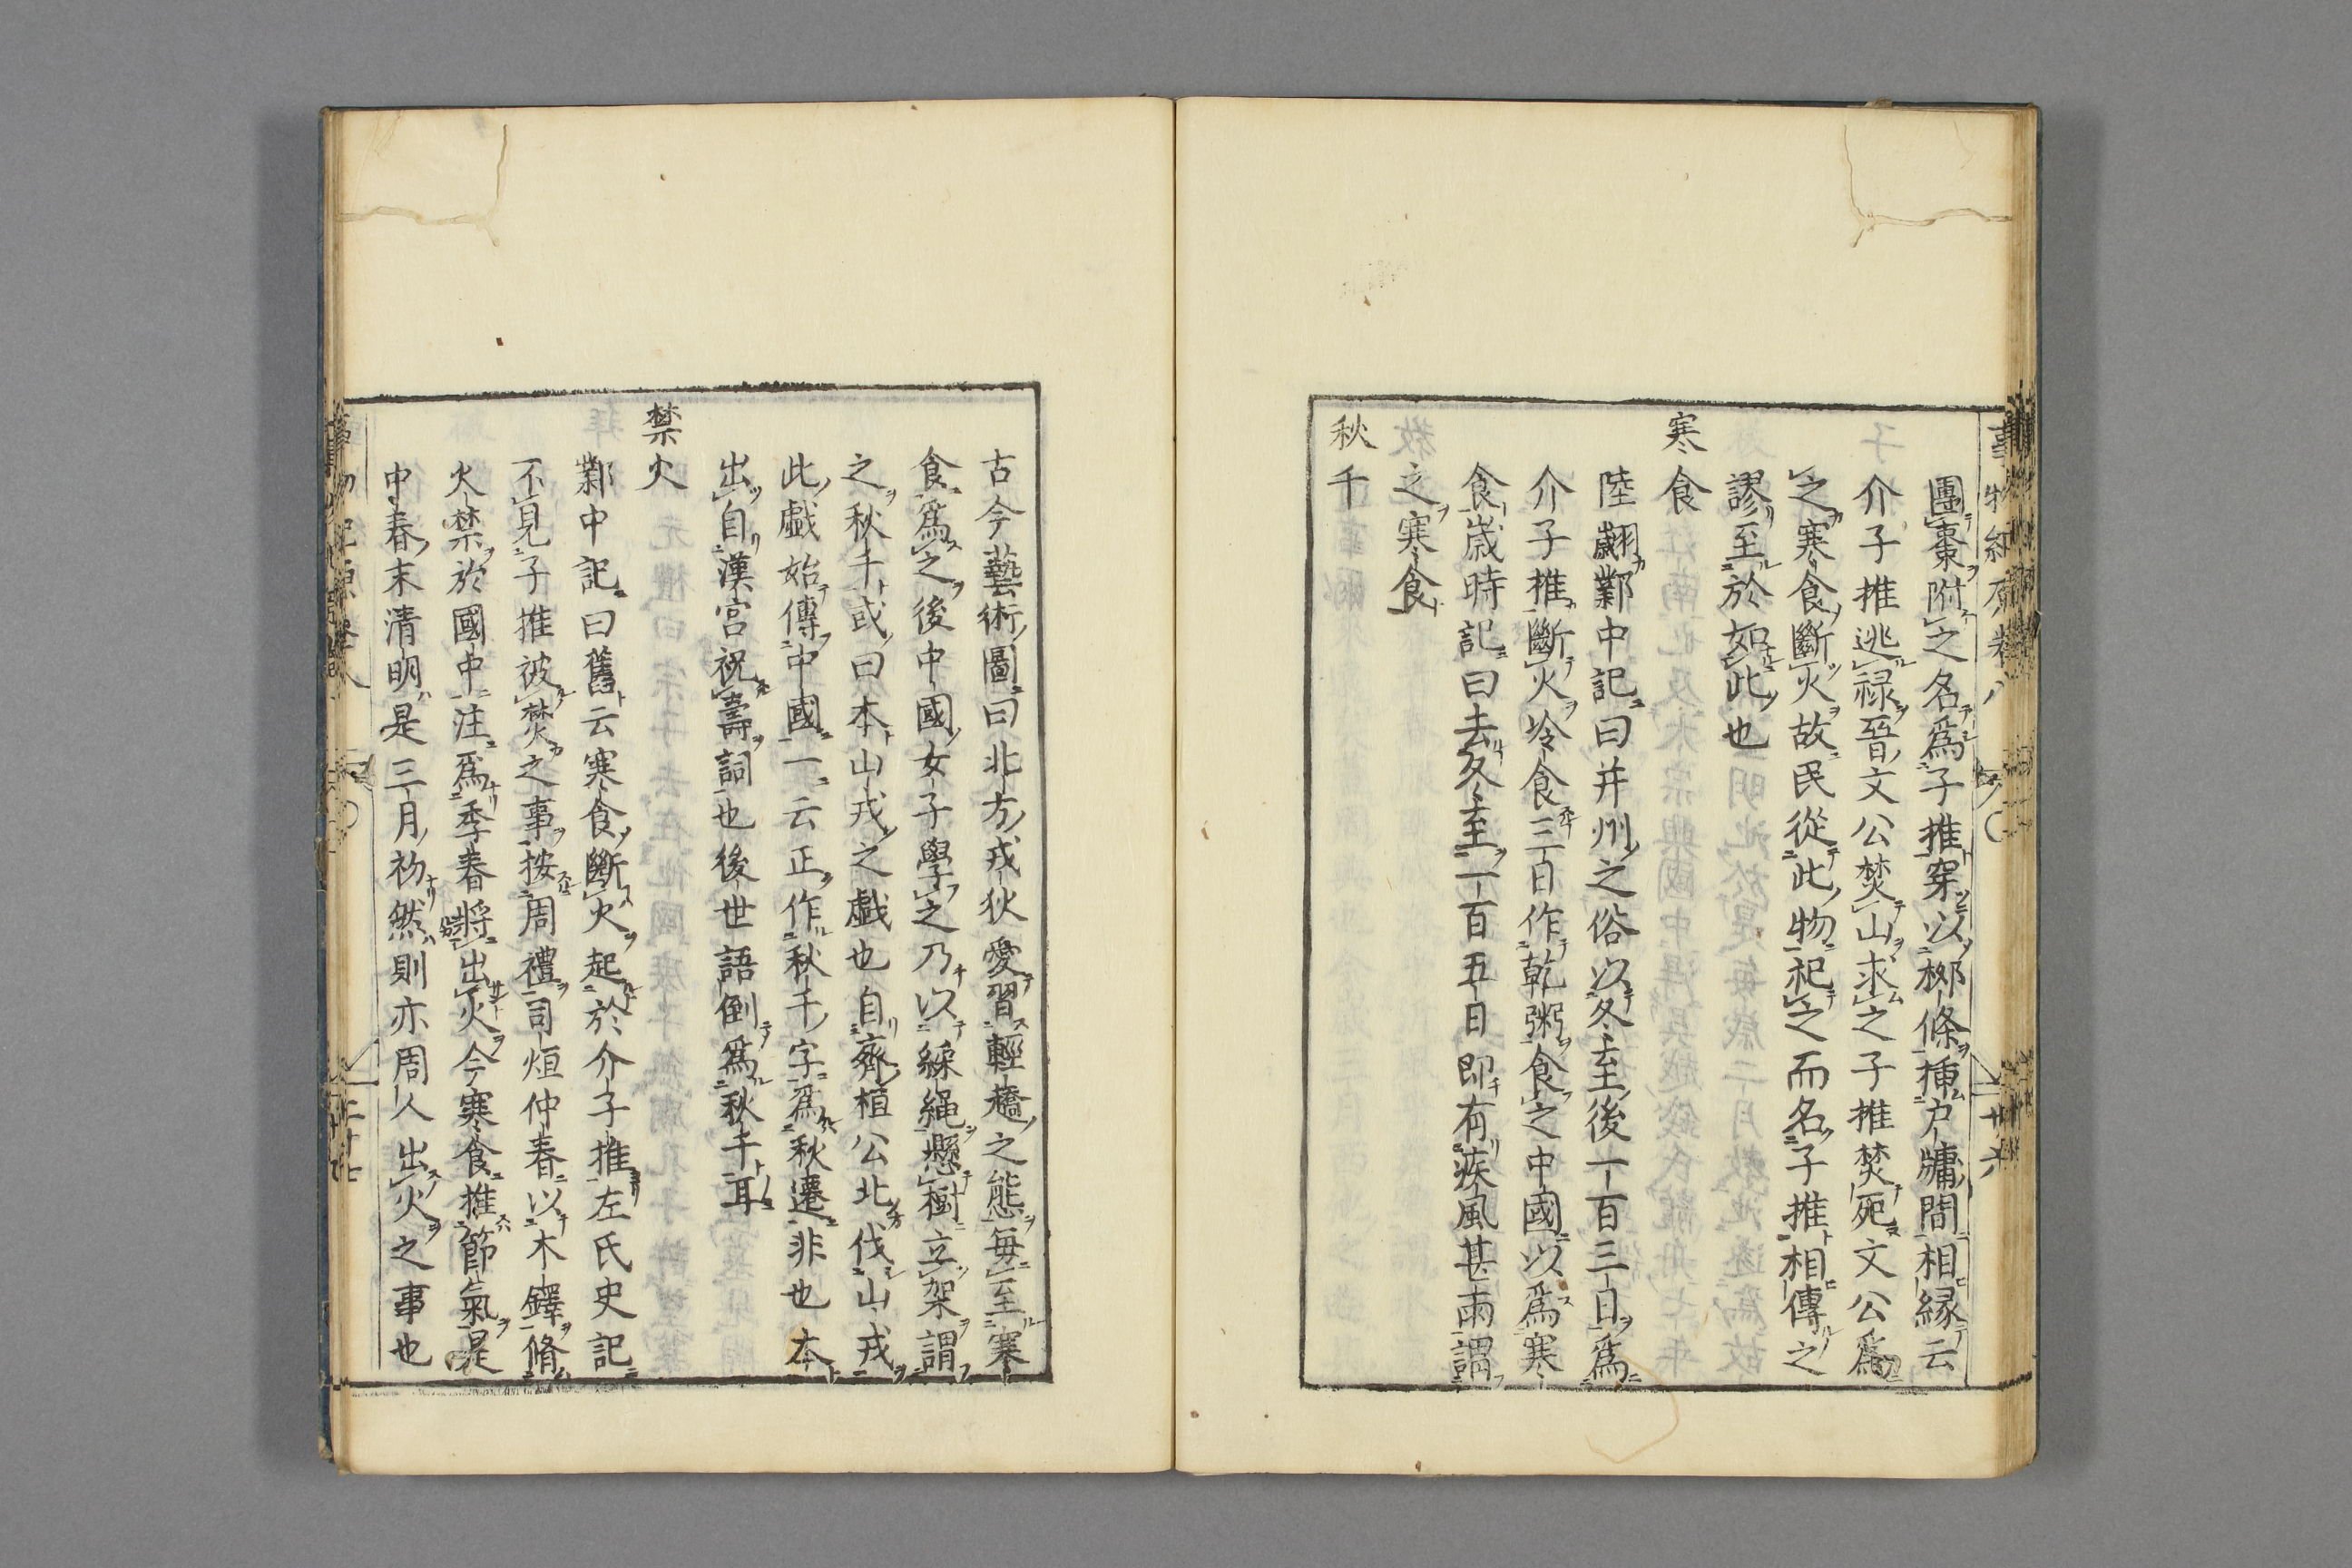 團棗附之名爲子推穿以柳條揷戸牖間相縁云
介子推逃禄晉文公焚山求之子推焚死文公爲
之寒食斷火故民從此物祀之而名子推相傳之
謬至於如此也
寒食
陸翽鄴中記曰并州之俗以冬至後一百三日爲
介子推斷火冷食三日作乾粥食之中國以爲寒
食歳時記曰去冬至一百五日即有疾風甚雨謂
之寒食
秋千
古今藝術圖曰北方戎狄愛習輕趫之態毎至寒
食爲之後中國女子學之乃以綵繩懸樹立架謂
之秋千或曰本山戎之戯也自齊植公北伐山戎
此戯始傳中國一云正作秋千字爲秋遷非也本
出自漢宮祝壽詞也後世語倒爲秋千耳
禁火
鄴中記曰舊云寒食斷火起於介子推左氏史記
不見子推被焚之事按周禮司烜仲春以木鐸脩
火禁於國中注爲季春將出火今寒食推節氣是
中春末清明是三月初然則亦周人出火之事也